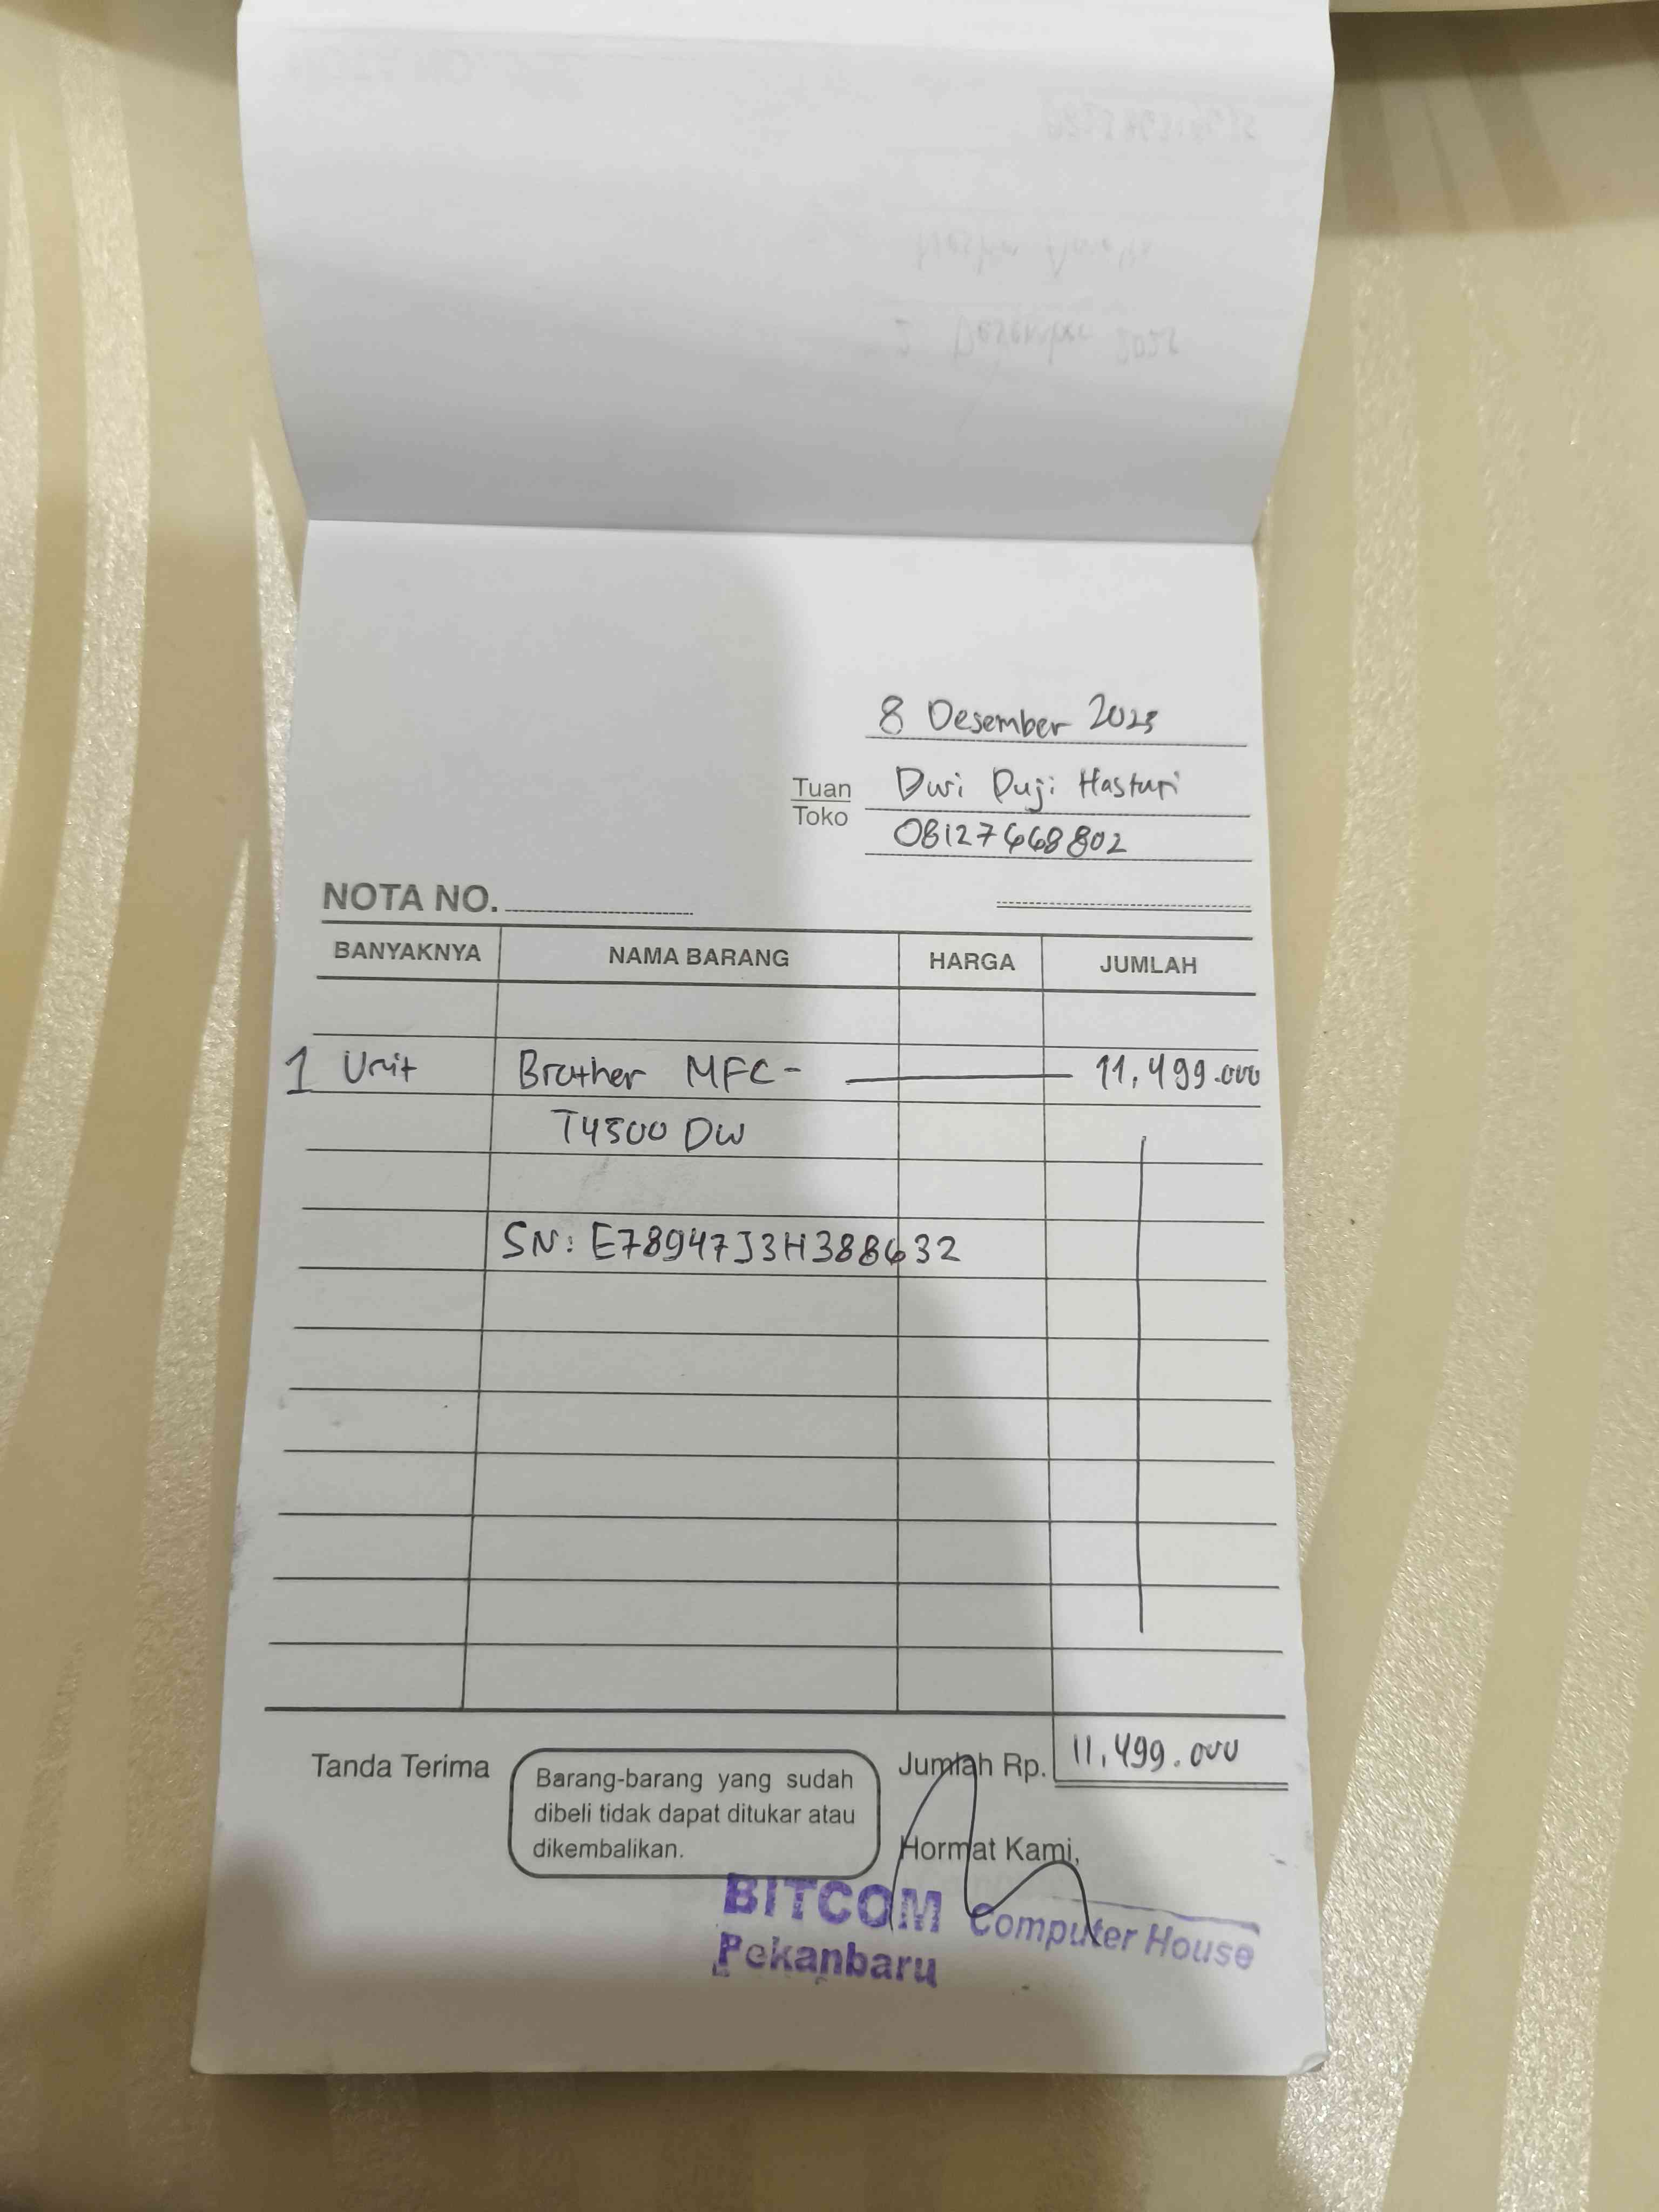 8 Desember 2023
Tuan
Dwi Puji Hastuti
Toko
08127668802
NOTA NO.
BANYAKNYA NAMA BARANG HARGA JUMLAH
1 Unit Brother MFC- 11,499.000
T4500 DW
SN: E78947J3H388632
Tanda Terima
Barang-barang yang sudah
dibeli tidak dapat ditukar atau
dikembalikan.
Jumlah Rp. 11,499.000
Hormat Kami,
BITCOM Computer House
Pekanbaru